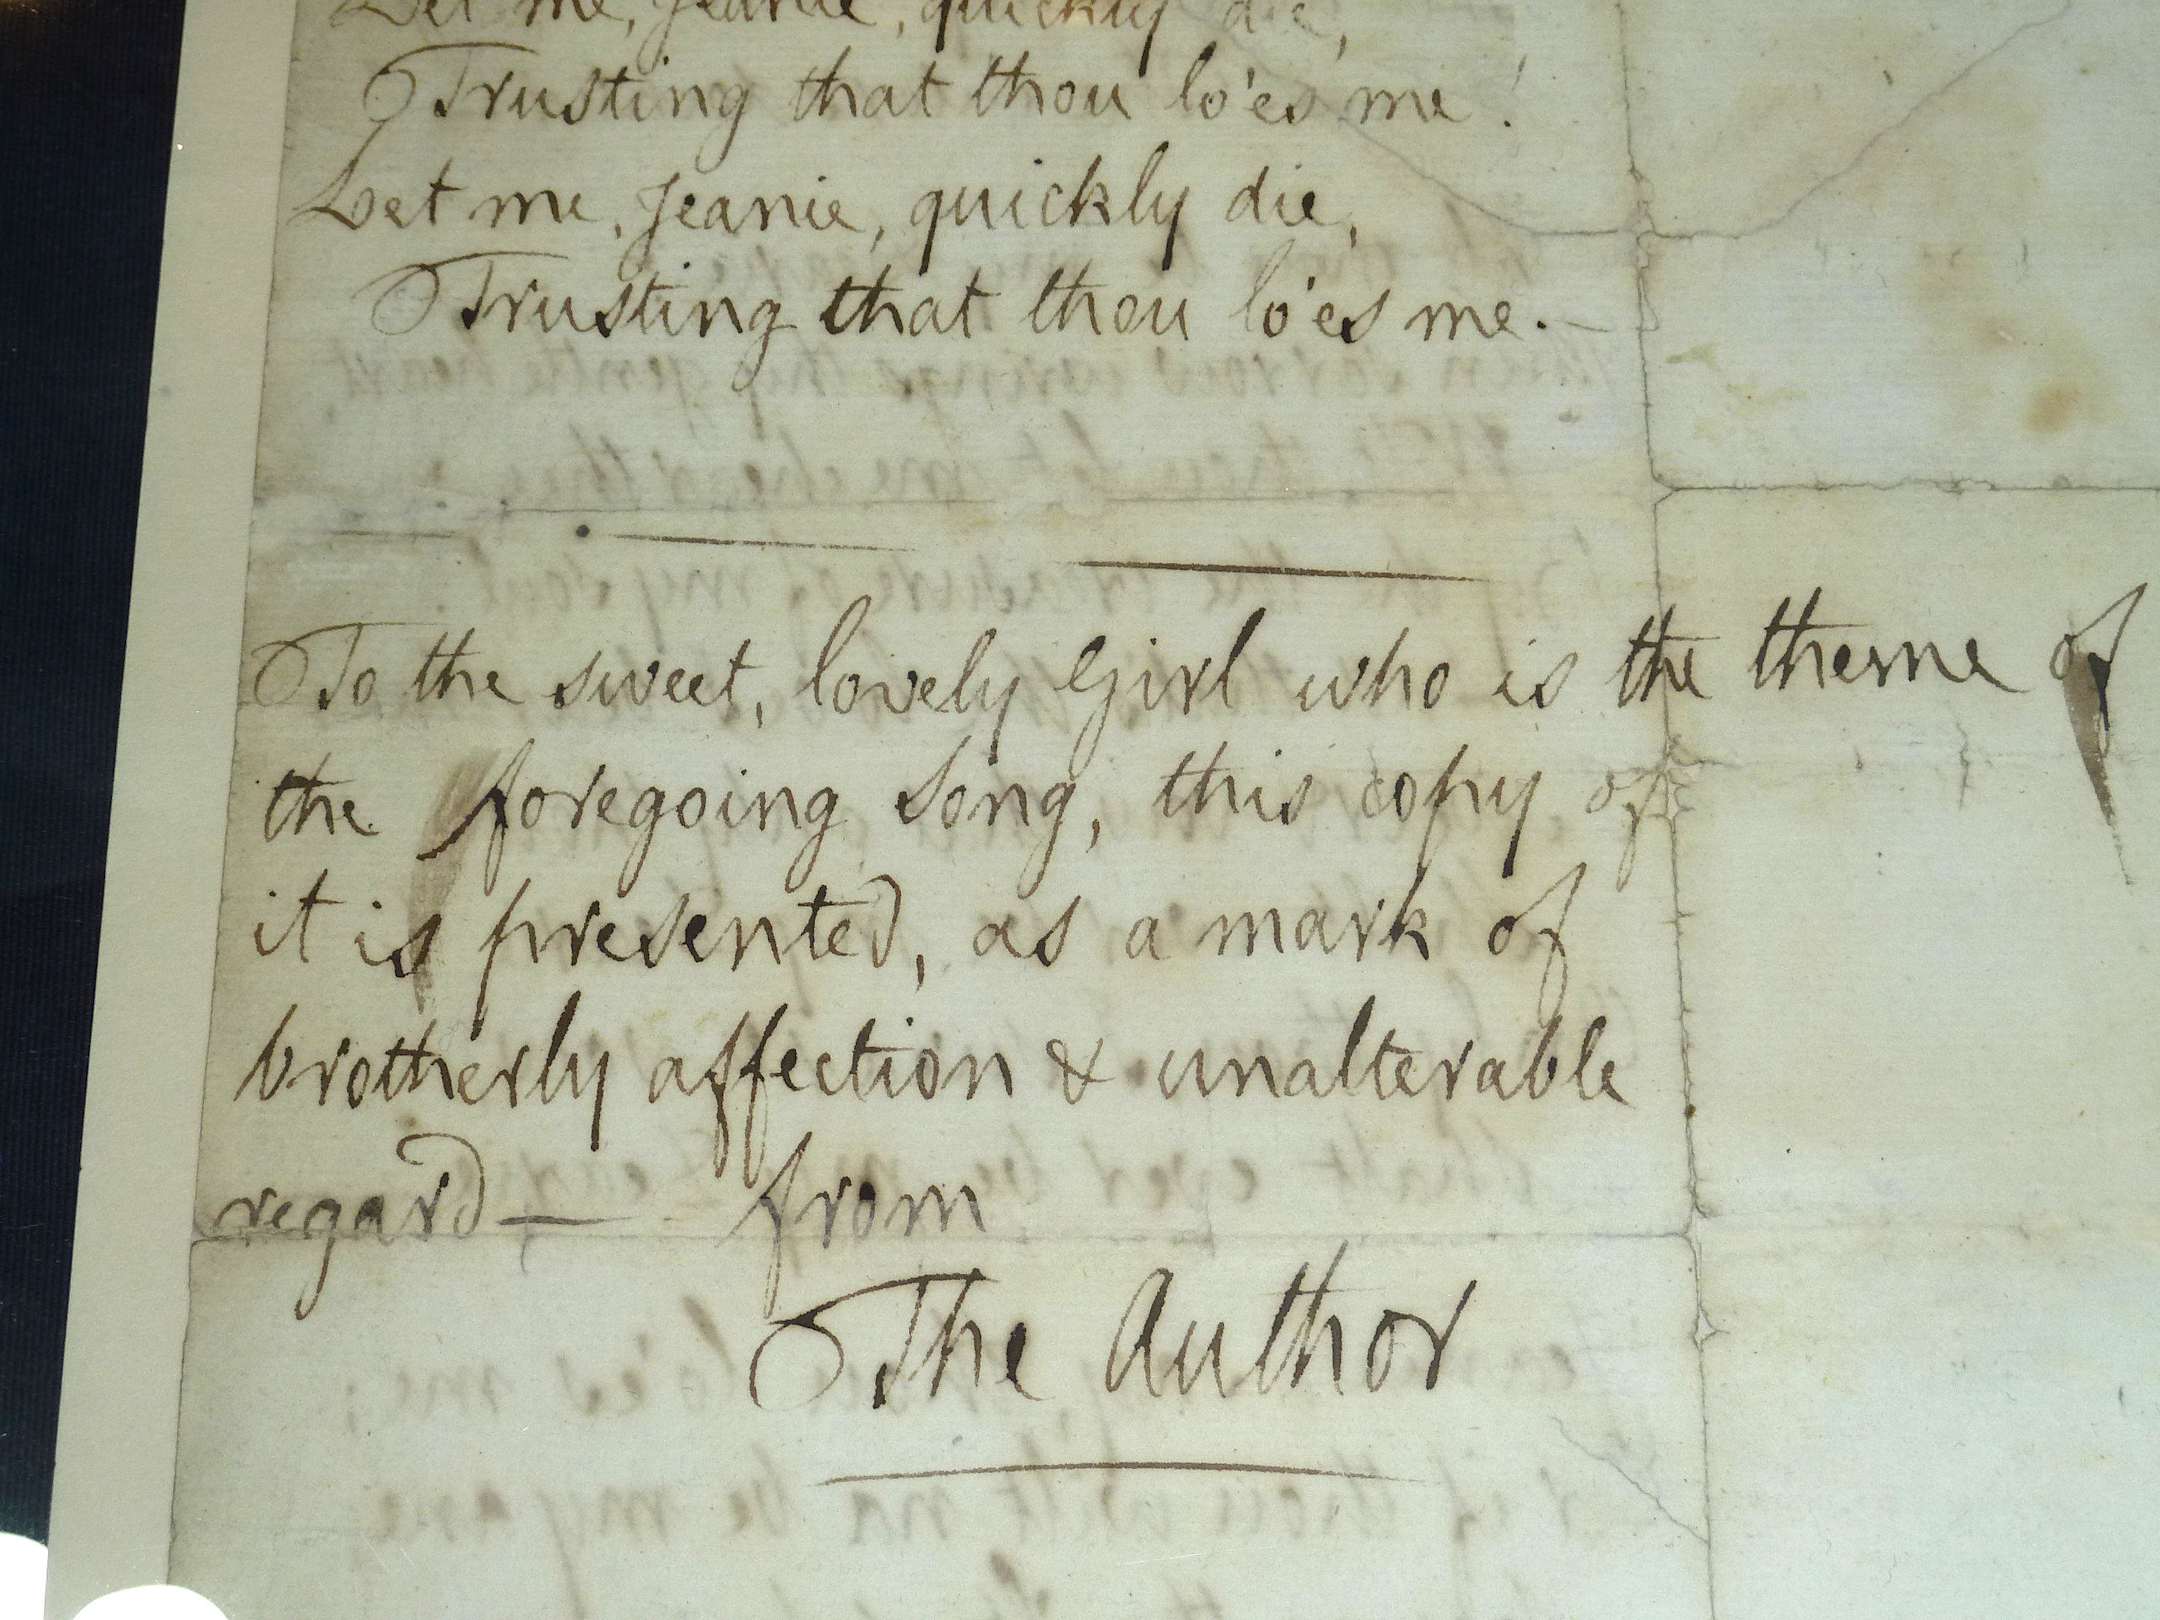 Let me, Jeanie, quickly die,
Trusting that thou lo'es me!
Let me, Jeanie, quickly die,
Trusting that thou lo'es me.—
To the sweet, lovely Girl who is the theme of
the foregoing Song, this copy of
it is presented, as a mark of
brotherly affection & unalterable
regard — from
The Author